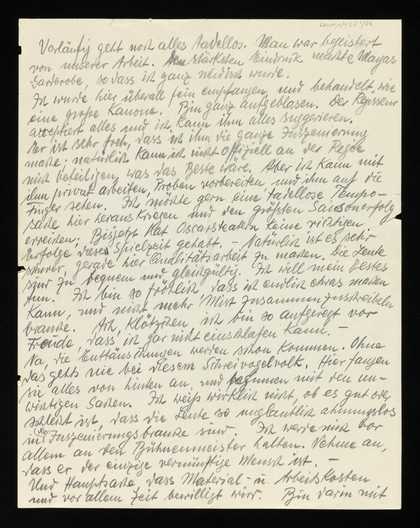 Vorläufig geht noch alles tadellos. Man war begeistert
von unserer Arbeit. Den stärksten Eindruck machte Mayas
Garderobe, so dass ich ganz neidisch wurde.
Ich wurde hier überall fein empfangen, und behandelt, wie
eine grosse Kanone. Bin ganz aufgeblasen. Der Regisseur
acceptiert alles und ich kann ihm alles suggerieren.
Er ist sehr froh, dass ich ihm die ganze Inszenierung
mache; natürlich kann ich nicht offiziell an der Regie
mich beteiligen, was das Beste wäre. Aber ich kann mit
ihm privat arbeiten, Proben vorbereiten und ihm auf die
Finger sehen. Ich möchte gern eine tadellose Tempo-
sache hier herauskriegen und den größten Saisonerfolg
erreichen; Bisjetzt hat Oscarsteatern keine richtigen
Erfolge diese Spielzeit gehabt. – Natürlich ist es sehr
schwer, gerade hier Qualitätsarbeit zu machen. Die Leute
sind zu bequem und gleichgültig. Ich will mein bestes
tun. Ich bin so fröhlich, dass ich endlich etwas machen
kann, und nicht mehr Mist zusammenzuschreiben
brauche. Ach, Klötzchen, ich bin so aufgeregt vor
Freude, dass ich gar nicht einschlafen kann. –
Na, die Enttäuschungen werden schon kommen. Ohne
das gehts nie bei diesem Schreivogelvolk. Hier fangen
sie alles von hinten an, und beginnen mit den un-
wichtigen Sachen. Ich weiss wirklich nicht, ob es gut oder
schlecht ist, dass die Leute so unglaublich ahnungslos
in der Inszenierungsbranche sind. Ich werde mich vor
allem an den Bühnenmeister halten. Nehme an,
dass er der einzige vernünftige Mensch ist. –
Und Hauptsache, dass Material- u Arbeitskosten
und vor allem Zeit bewilligt wird. Bin darin mit